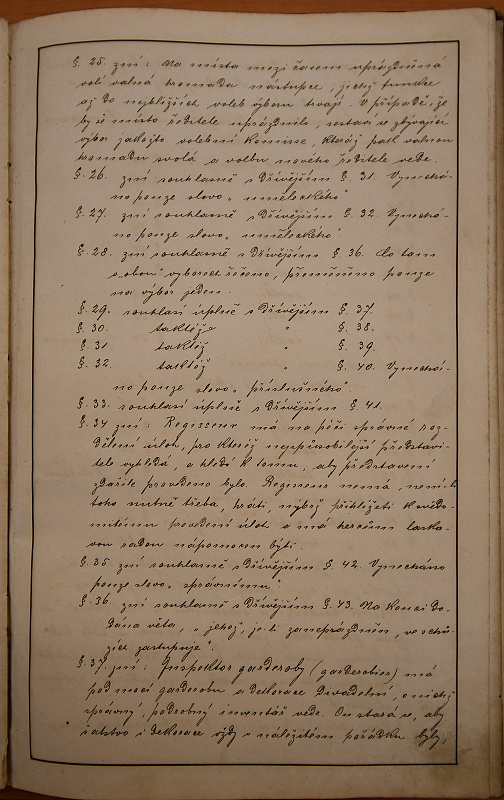 §. 25. zní: Na místa mezi časem uprázdněná
volí valná hromada nástupce, jejichž funkce
až do nejbližších voleb výboru trvají. V případě, že
by se místo ředitele uprázdnilo, sestaví se zbývající
výbor jakožto volební komisse, kteráž pak valnou
hromadu svolá a volbu nového ředitele vede.
§. 26. zní souhlasně s dřívějším §. 31. Vynechá-
no pouze slovo „uměleckého"
§. 27. zní souhlasně s dřívějším §. 32. Vynechá-
no pouze slovo „uměleckého"
§. 28. zní souhlasně s dřívějším §. 36. Co tam
o „obou" výborech řečeno, přeměněno pouze
na výbor jeden.
§. 29. souhlasí úplně s dřívějším §. 37.
§. 30. taktéž „ §. 38.
§. 31 taktéž „ §. 39.
§. 32. taktéž „ §. 40. Vynechá-
no pouze slovo „příslušného".
§. 33. souhlasí úplně s dřívějším §. 41.
§. 34 zní: Regisseur má na péči správné roz-
dělení úloh, pro kteréž nejspůsobilejší představi-
tele vyhledá, a hledí k tomu, aby představení
zdařile provedeno bylo. Regisseur nemá, není-li
toho nutně třeba, hráti, nýbrž přihlížeti k vědo-
mitému provedení úloh a má hercům laska-
vou radou nápomocen býti.
§. 35. zní souhlasně s dřívějším §. 42. Vynecháno
pouze slovo „správnímu"
§. 36. zní souhlasně s dřívějším §. 43. Na konci do-
dána věta, „jehož, je-li zaneprázdněn, ve schů-
zích zastupuje".
§. 37. zní: Inspektor garderoby (garderobier) má
pod mocí garderobu a dekorace divadelní, o nichž
správný, podrobný inventář vede. On stará se, aby
šatstvo i dekorace vždy v náležitém pořádku byly,